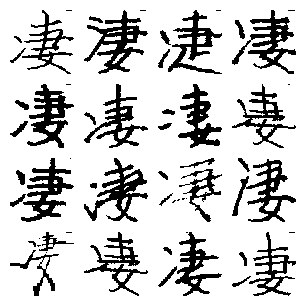 凄凄凄凄
凄凄凄凄
凄凄凄凄
凄凄凄凄